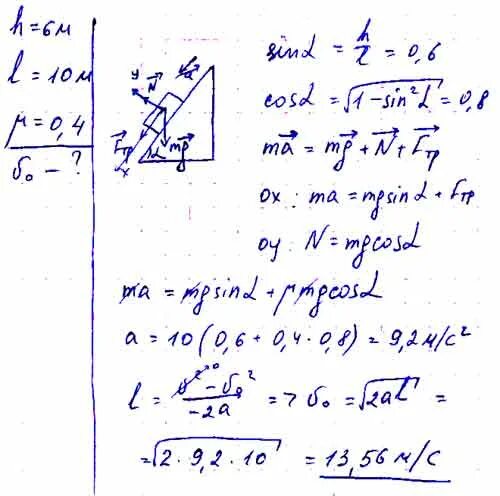 h = 6м
l = 10м
μ = 0,4
υ₀ – ?
y N a
Fтр α mg
x
sinα = h/l = 0,6
cosα = √(1 – sin²α) = 0,8
ma = mg + N + Fтр
ox: ma = mgsinα + Fтр
oy: N = mgcosα
ma = mgsinα + μmgcosα
a = 10(0,6 + 0,4·0,8) = 9,2м/с²
l = (υ² – υ₀²)/(–2a) => υ₀ = √(2al) =
= √(2·9,2·10) = 13,56м/с